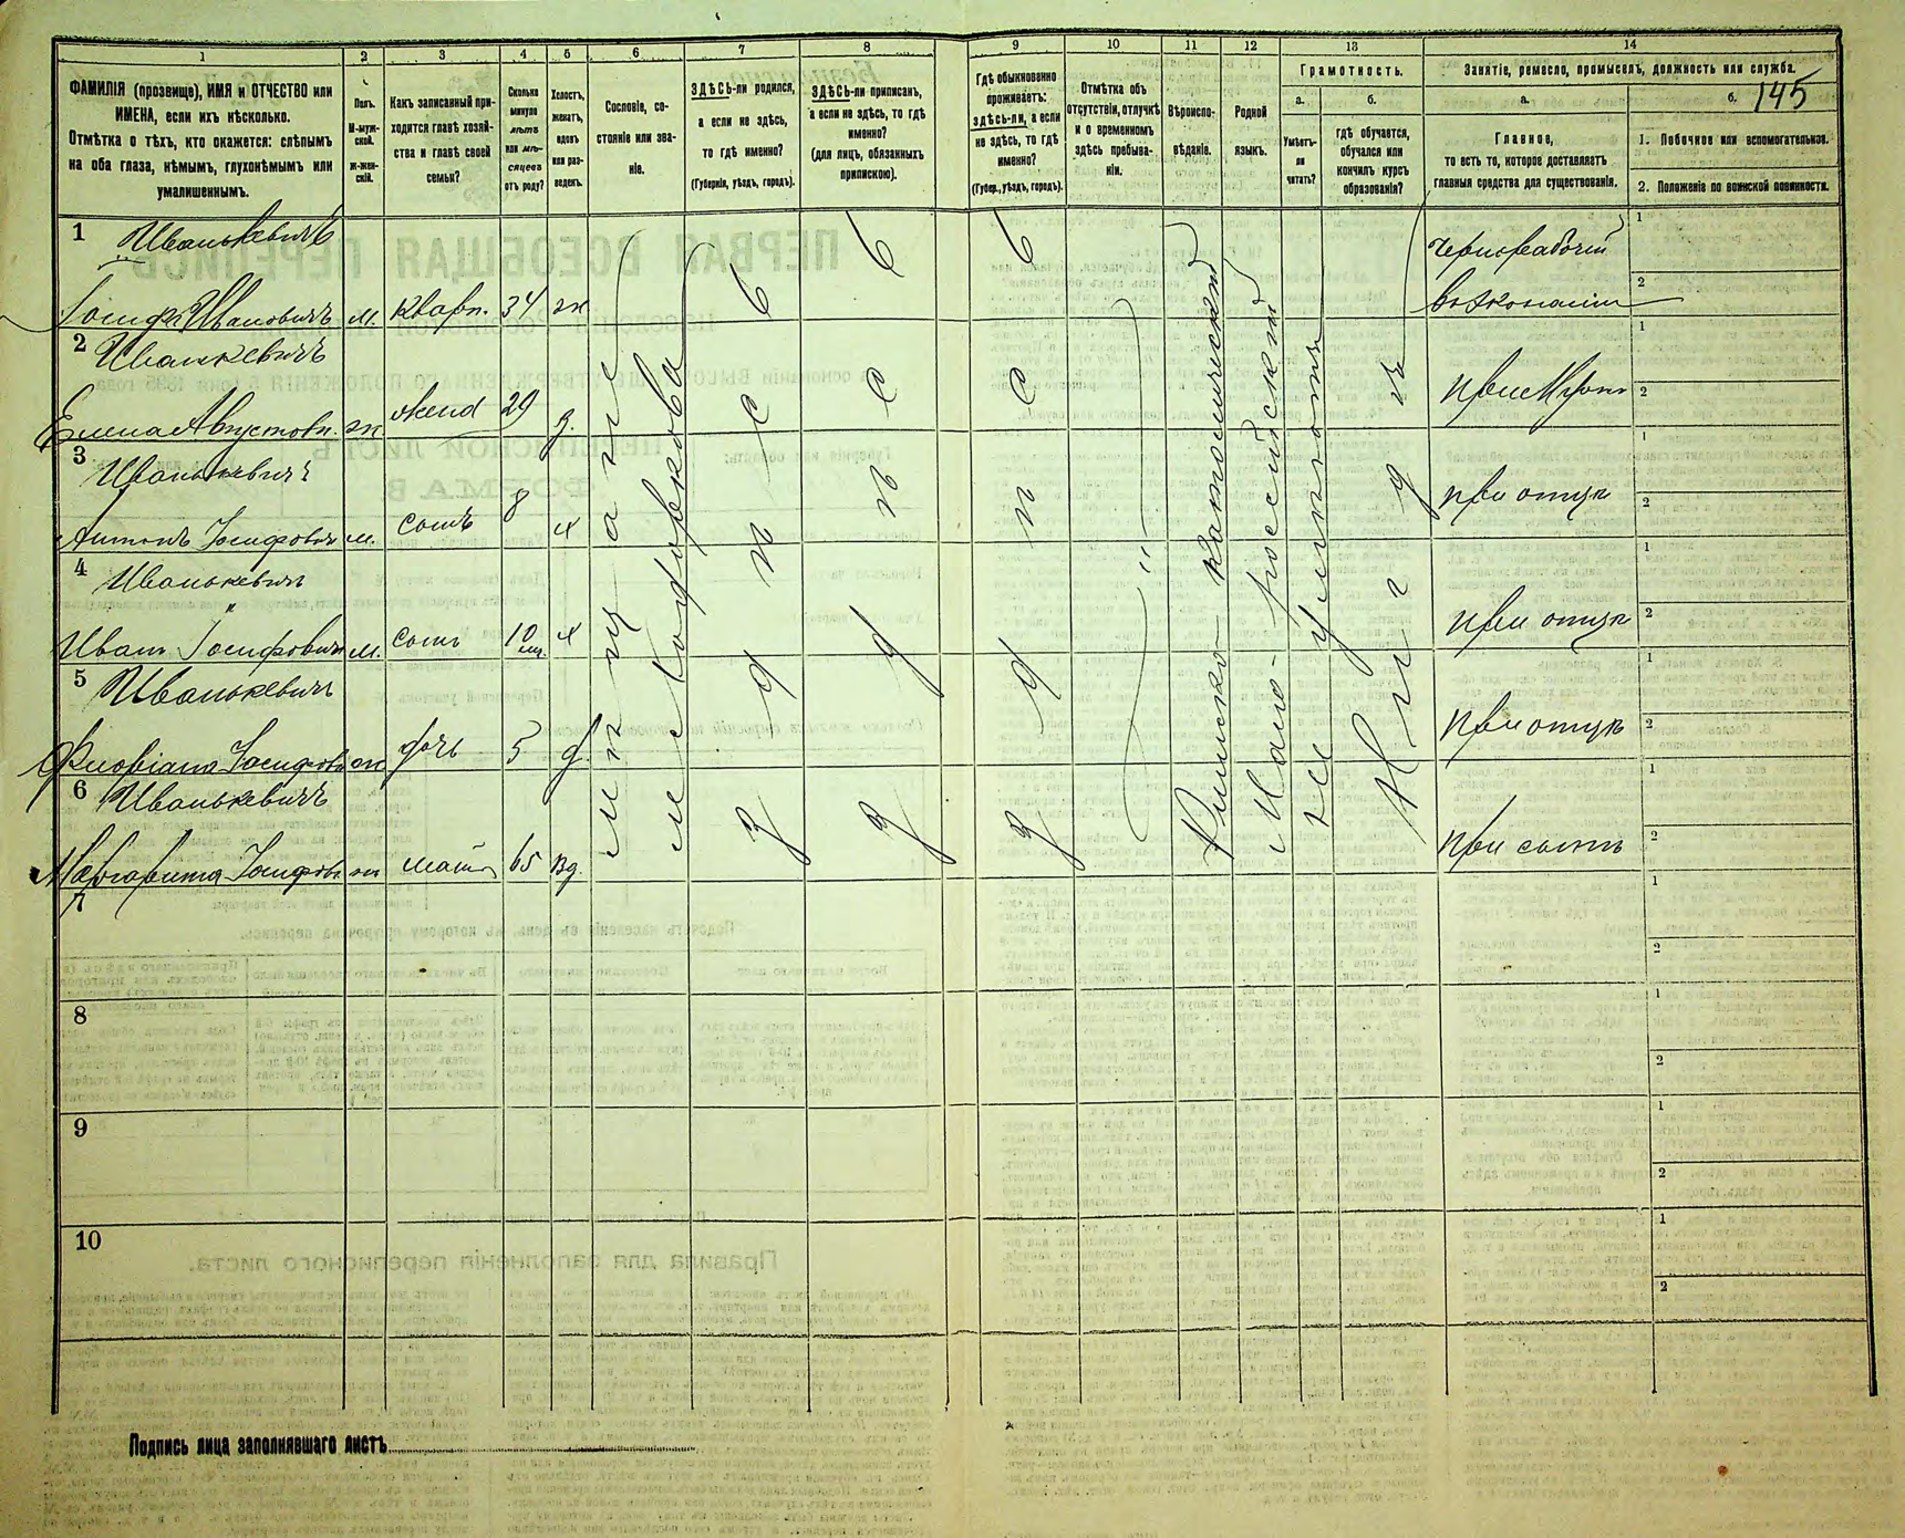 1 2 3 4 5 6 7 8 9 10 11 12 13 14
ФАМИЛІЯ (прозвище), ИМЯ и ОТЧЕСТВО или
ИМЕНА, если ихъ нѣсколько.
Отмѣтка о тѣхъ, кто окажется: слѣпымъ
на оба глаза, нѣмымъ, глухонѣмымъ или
умалишеннымъ.
Полъ.
М-муж-
ской.
ж-жен-
скій.
Какъ записанный при-
ходится главѣ хозяй-
ства и главѣ своей
семьи?
Сколько
минуло
лѣтъ
или мѣ-
сяцевъ
отъ роду?
Холостъ,
женатъ,
вдовъ
или раз-
веденъ.
Сословіе, со-
стояніе или зва-
ніе.
ЗДѢСЬ-ли родился,
а если не здѣсь,
то гдѣ именно?
(Губернія, уѣздъ, городъ).
ЗДѢСЬ-ли приписанъ,
а если не здѣсь, то гдѣ
именно?
(для лицъ, обязанныхъ
припискою).
Гдѣ обыкновенно
проживаетъ:
здѣсь-ли, а если
не здѣсь, то гдѣ
именно?
(Губер., уѣздъ, городъ).
Отмѣтка объ
отсутствіи, отлучкѣ
и о временномъ
здѣсь пребыва-
ніи.
Вѣроиспо-
вѣданіе.
Родной
языкъ.
Грамотность.
а.
Умѣетъ-
ли
читать?
б.
гдѣ обучается,
обучался или
кончилъ курсъ
образованія?
Занятіе, ремесло, промыселъ, должность или служба.
а.
Главное,
то есть то, которое доставляетъ
главныя средства для существованія.
б. 145
1. Побочное или вспомогательное.
2. Положеніе по воинской повинности.
1 Иванькевичъ
Іосифъ Ивановичъ м. кварт. 34 ж
чернорабочій
2 Иванькевичъ
Елена Августовн. ж 29 з.
3 Иванькевичъ
Антонъ Іосифовъ м. сынъ 8 х
при отцѣ
4 Иванькевичъ
Иванъ Іосифовичъ м. сынъ 10 х
при отцѣ
5 Иванькевичъ
Флоріана Іосифовн ж дочь 5 д.
при отцѣ
6 Иванькевичъ
Маргарита Іосифов ж мать 65 вд.
при сынѣ
мѣщане
здѣсь
здѣсь
здѣсь
"
Римско-католическій
неграмотны
Нигдѣ
7
8
9
10
1
2
1
2
1
2
1
2
1
2
1
2
1
2
1
2
1
2
1
2
Подпись лица заполнявшаго листъ